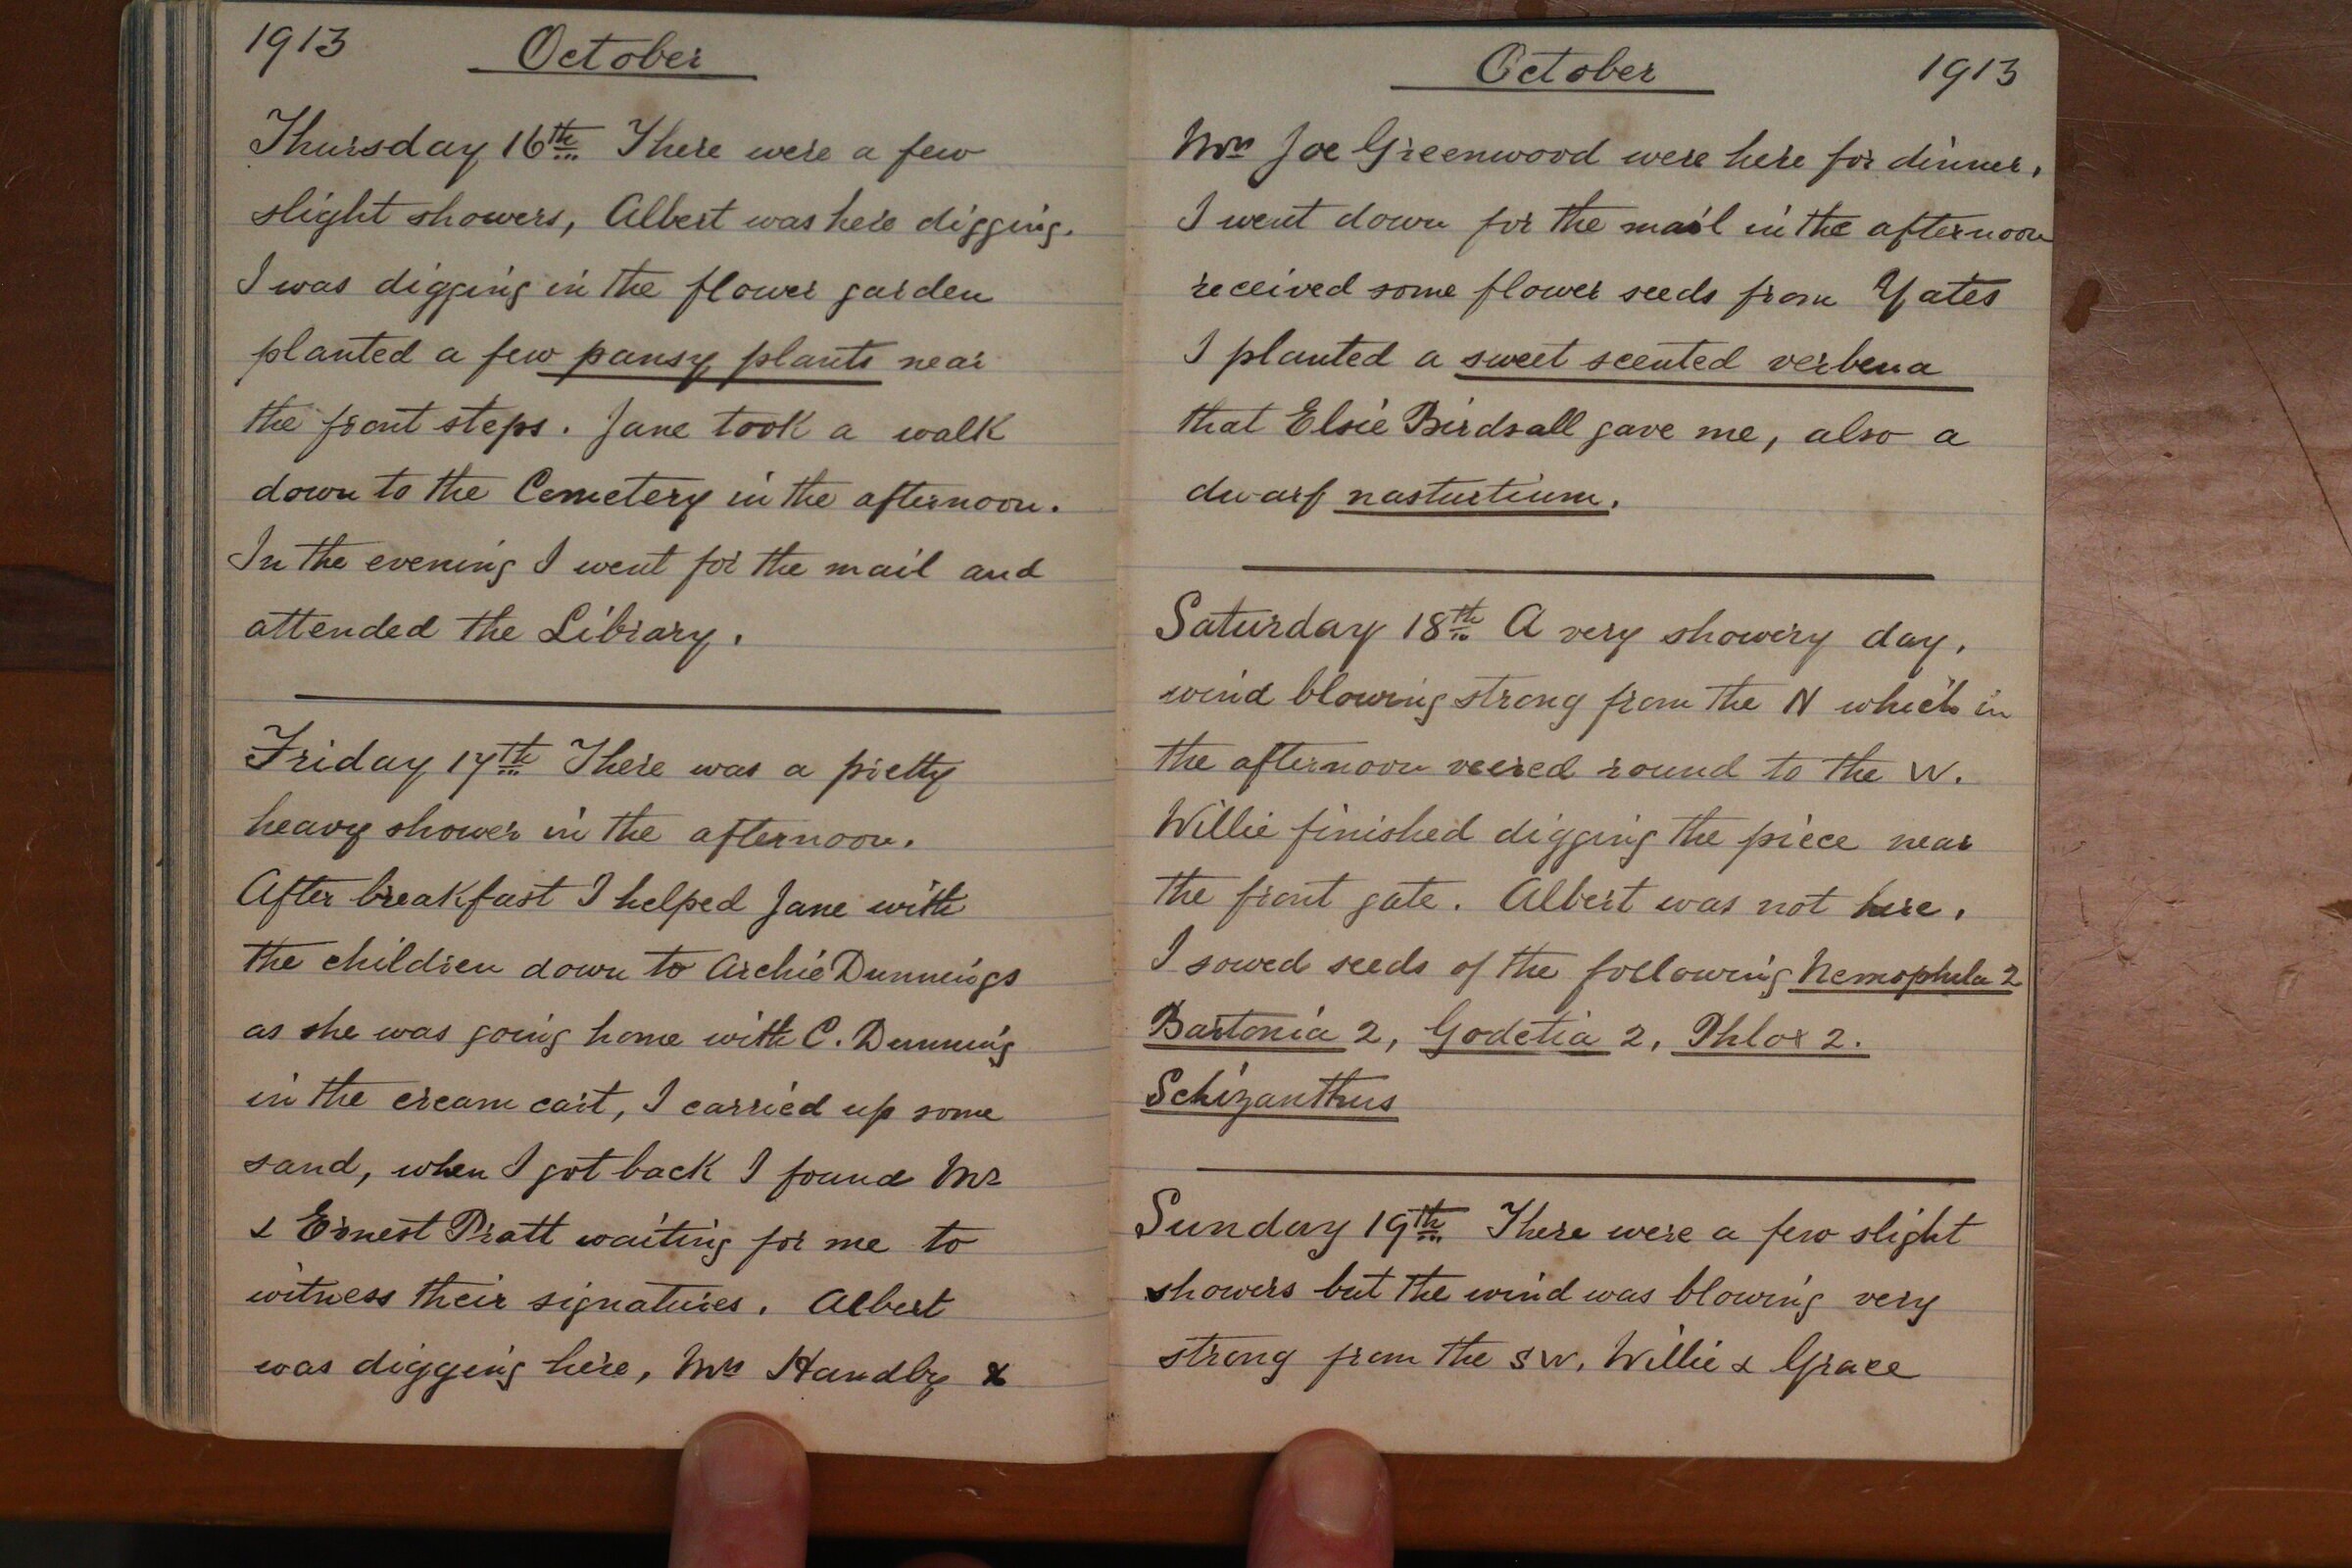 1913 October
Thursday 16th There were a few
slight showers, Albert was here digging.
I was digging in the flower garden
planted a few pansy plants near
the front steps. Jane took a walk
down to the Cemetery in the afternoon.
In the evening I went for the mail and
attended the Library.
Friday 17th There was a pretty
heavy shower in the afternoon.
After breakfast I helped Jane with
the children down to Archie Dunnings
as she was going home with C. Dunning
in the cream cart, I carried up some
sand, when I got back I found Mr
& Ernest Pratt waiting for me to
witness their signatures. Albert
was digging here, Mrs Handby &
October 1913
Mrs Joe Greenwood were here for dinner.
I went down for the mail in the afternoon
received some flower seeds from Yates
I planted a sweet scented verbena
that Elsie Birdsall gave me, also a
dwarf nasturtium.
Saturday 18th A very showery day,
wind blowing strong from the N which in
the afternoon veered round to the W.
Willie finished digging the piece near
the front gate. Albert was not here.
I sowed seeds of the following Nemophela 2
Bartonia 2, Godetia 2, Phlox 2.
Schizanthus
Sunday 19th There were a few slight
showers but the wind was blowing very
strong from the SW. Willie & Grace